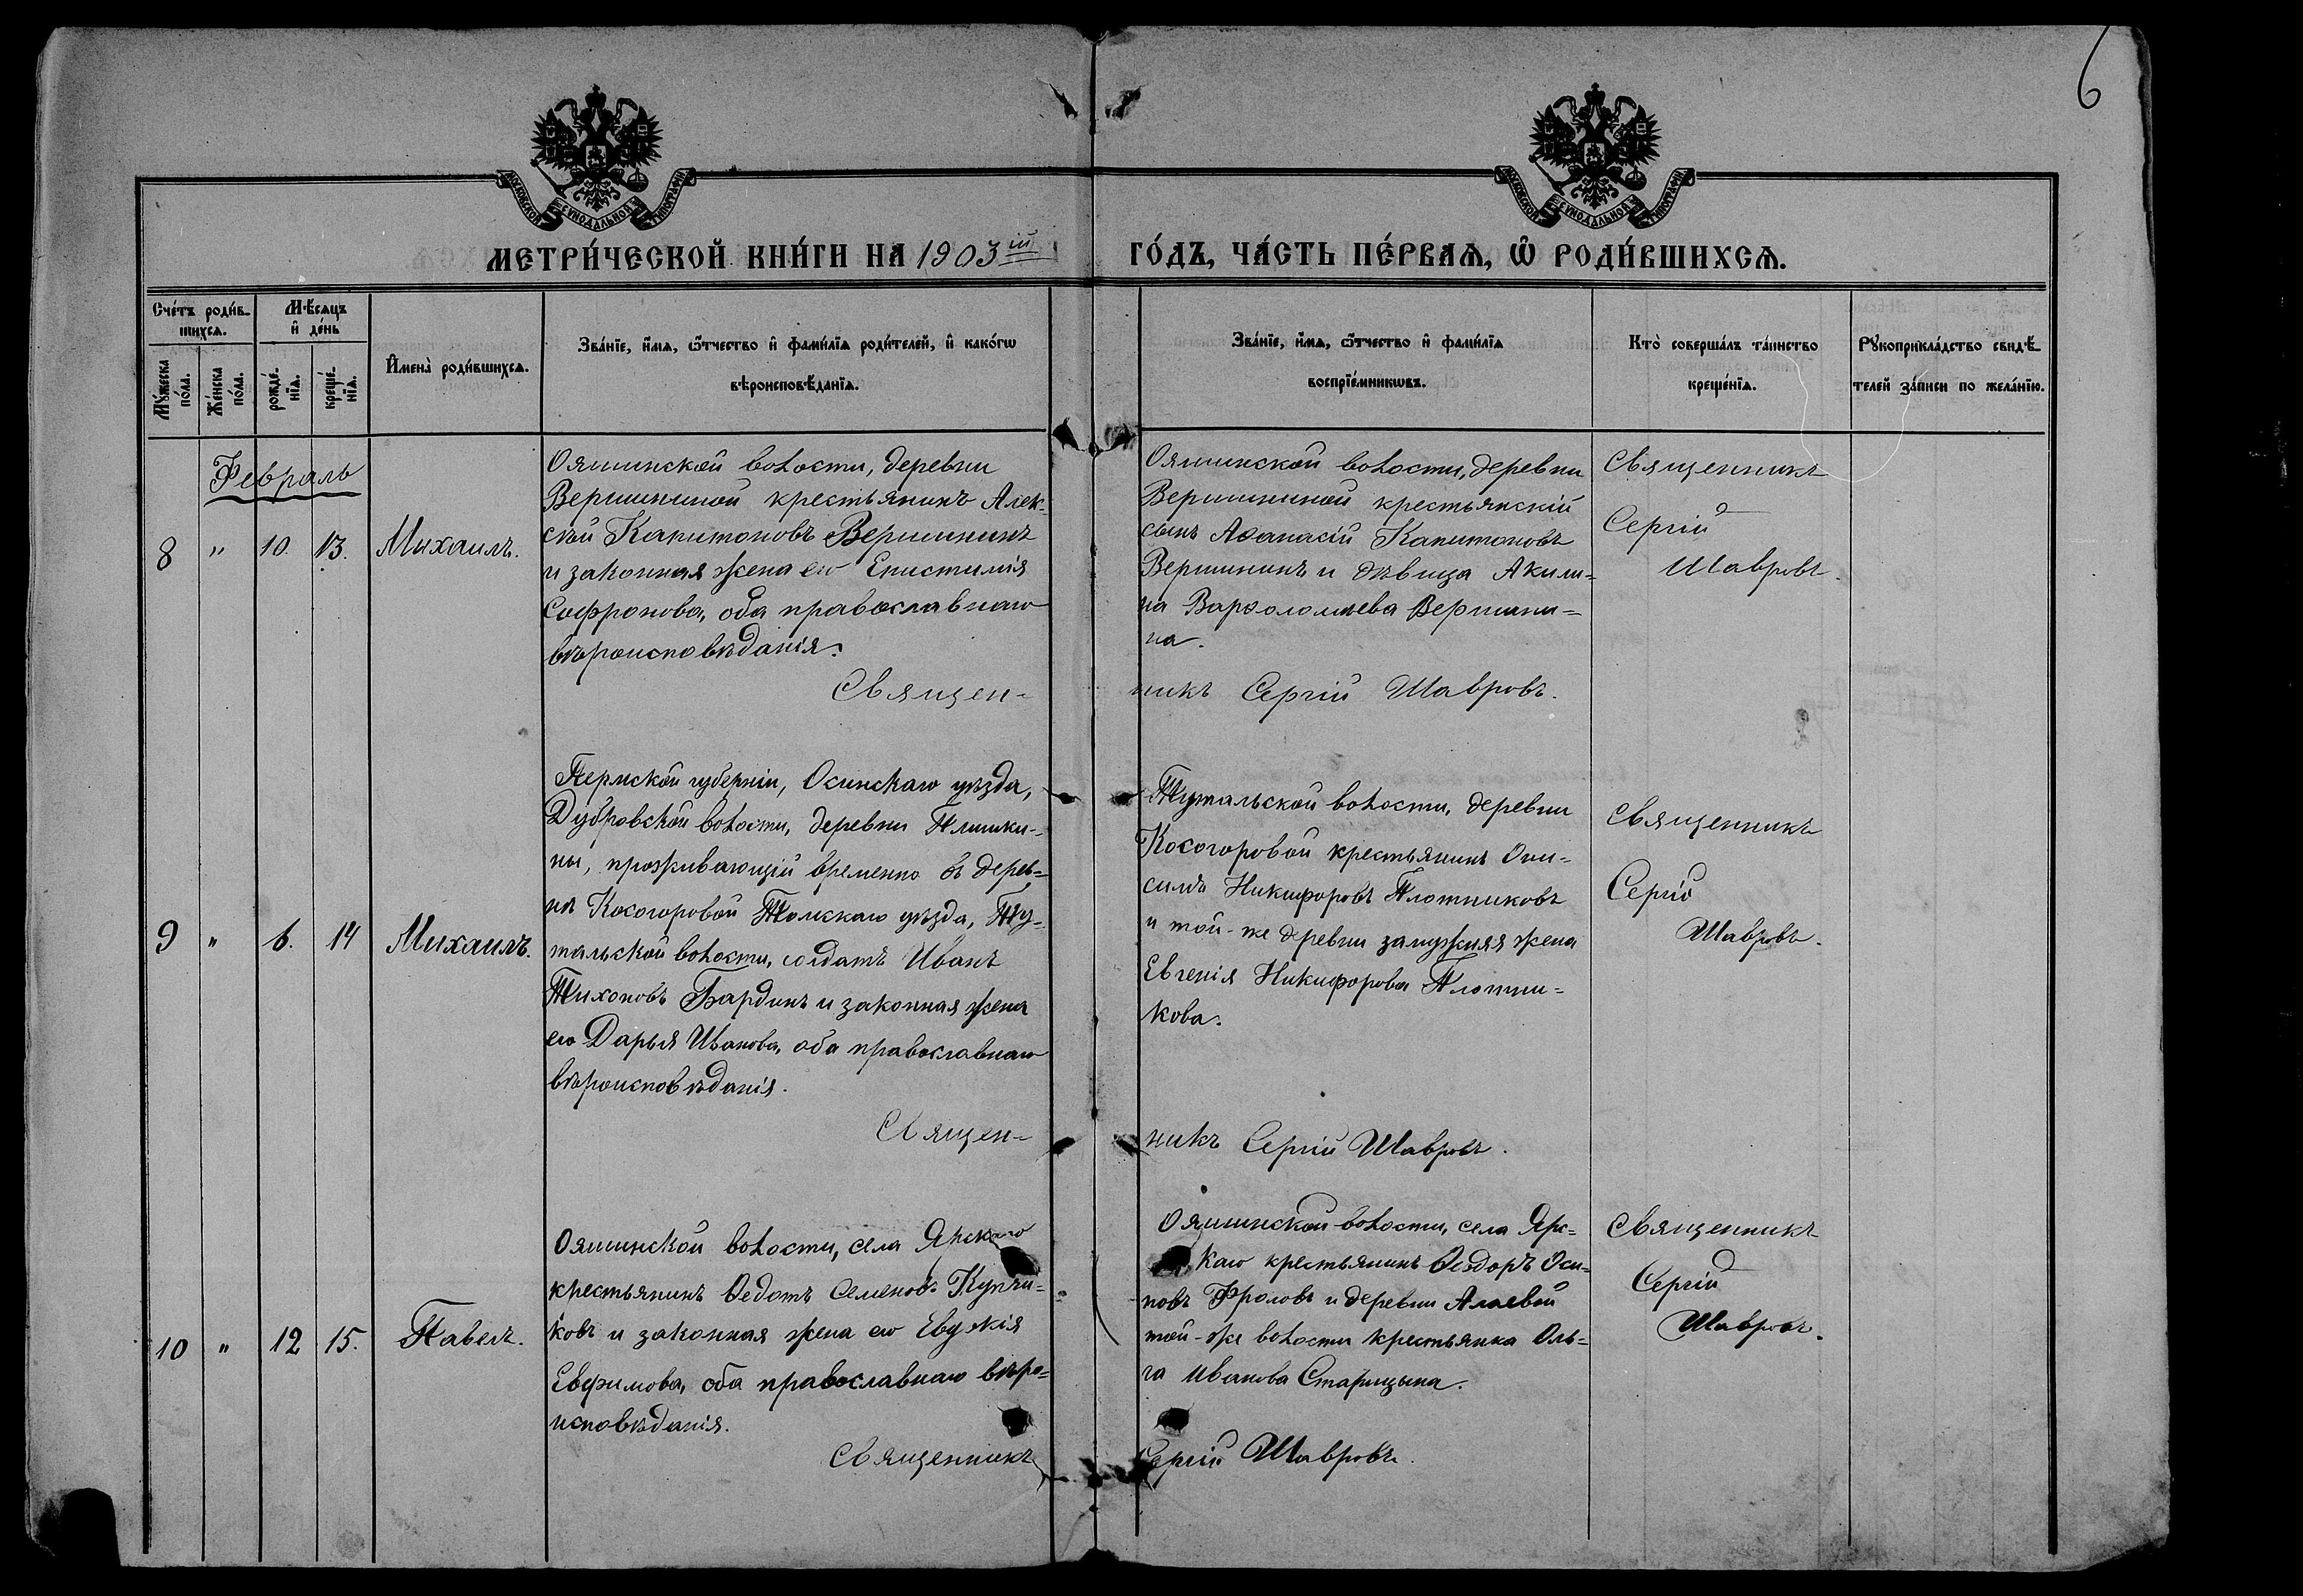 6
МОСКОВСКОЙ СУНОДАЛЬНОЙ ТИПОГРАФІИ
МОСКОВСКОЙ СУНОДАЛЬНОЙ ТИПОГРАФІИ
МЕТРИ́ЧЕСКОЙ КНИ́ГИ НА 1903 ій ГО́ДЪ, ЧА́СТЬ ПЕ́РВАѦ, Ѡ҆ РОДИ́ВШИХСѦ.
Сче́тъ роди́в-
шихсѧ.
Мꙋ́жеска
по́ла.
Же́нска
по́ла.
Мѣ́сѧцъ
и҆ де́нь
рожде́-
нїѧ.
креще́-
нїѧ.
И҆мена̀ роди́вшихсѧ.
Зва́нїе, и҆́мѧ, ѻ҆́тчество и҆ фами́лїѧ роди́телей, и҆ како́гѡ
вѣроисповѣ́данїѧ.
Зва́нїе, и҆́мѧ, ѻ҆́тчество и҆ фами́лїѧ
воспрїе́мникѡвъ.
Кто̀ соверша́лъ та́инство
креще́нїѧ.
Рꙋкоприкла́дство свидѣ́-
телей за́писи по жела́нїю.
Февраль
8 " 10. 13. Михаилъ.
Ояшинской волости, деревни
Вершининой крестьянинъ Алек-
сѣй Капитоновъ Вершининъ
и законная жена его Епистимія
Софронова, оба православнаго
вѣроисповѣданія.
Ояшинской волости, деревни
Вершининой крестьянскій
сынъ Аѳанасій Капитоновъ
Вершининъ и дѣвица Акили-
на Варѳоломѣева Вершини-
на.
Священникъ
Сергій
Шавровъ.
Священ-
никъ Сергій Шавровъ.
9 " 6. 14 Михаилъ.
Пермской губерніи, Осинскаго уѣзда,
Дубровской волости, деревни Плишки-
ны, проживающій временно въ дерев-
нѣ Косогоровой Томскаго уѣзда, Ту-
тальской волости, солдатъ Иванъ
Тихоновъ Бардинъ и законная жена
его Дарья Иванова, оба православнаго
вѣроисповѣданія.
Тутальской волости, деревни
Косогоровой крестьянинъ Они-
симъ Никифоровъ Плотниковъ
и той-же деревни замужняя жена
Евгенія Никифорова Плотни-
кова.
Священникъ
Сергій
Шавровъ.
Священ-
никъ Сергій Шавровъ.
10 " 12 15. Павелъ.
Ояшинской волости, села Ярскаго
крестьянинъ Ѳедотъ Семеновъ Купчи-
ковъ и законная жена его Евдокія
Евфимова, оба православнаго вѣро-
исповѣданія.
Ояшинской волости, села Ярс-
каго крестьянинъ Ѳеодоръ Оси-
повъ Фроловъ и деревни Алаевой
той-же волости крестьянка Оль-
га Иванова Старицына.
Священникъ
Сергій
Шавровъ.
Священникъ
Сергій Шавровъ.